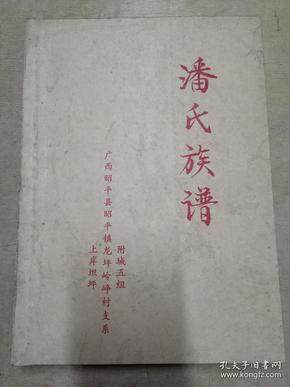 潘氏族谱
附城五组
广西昭平县昭平镇龙坪岭峰村支系
上岸坦坪
孔夫子旧书网